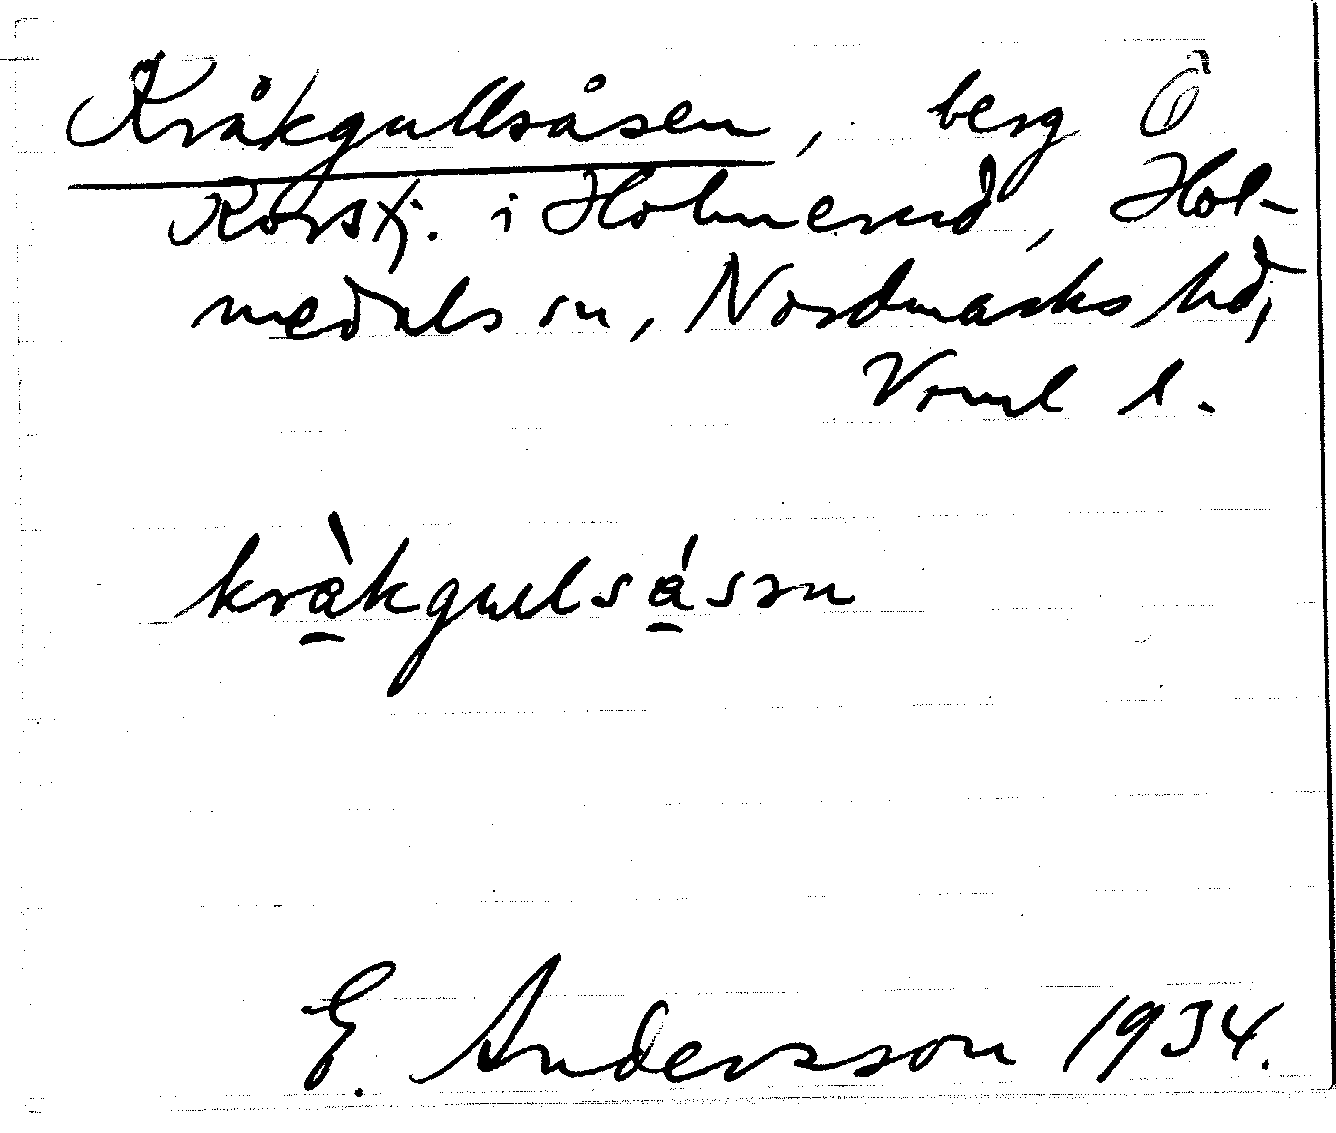 Kråkgullsåsen, berg Ö
Korstj. i Holmerud, Hol-
medals sn, Nordmarks hd,
Vrml l.
krà̱kgulsá̱sən
E. Andersson 1934.